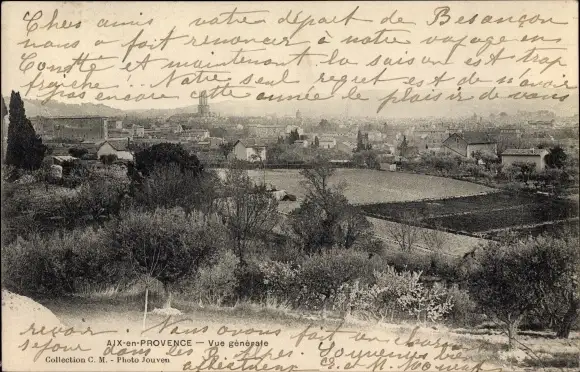 Chers amis votre départ de Besançon
nous a fait renoncer à notre voyage en
Comté et maintenant la saison est trop
fraîche. Notre seul regret est de n'avoir
pas encore cette année le plaisir de vous
revoir. Nous avons fait un
séjour dans les B. Alpes.
affectueux
AIX-en-PROVENCE — Vue générale
Collection C. M. - Photo Jouven